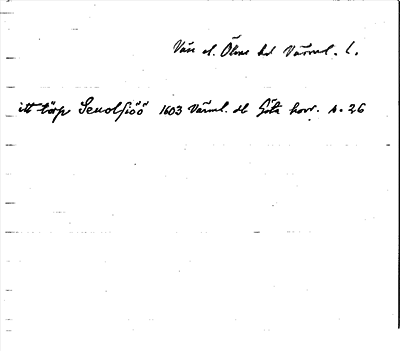 Väse el. Ölme hd Värml. l.
itt torp Senolsiöö 1603 Värml. db Göta hovr. s. 26